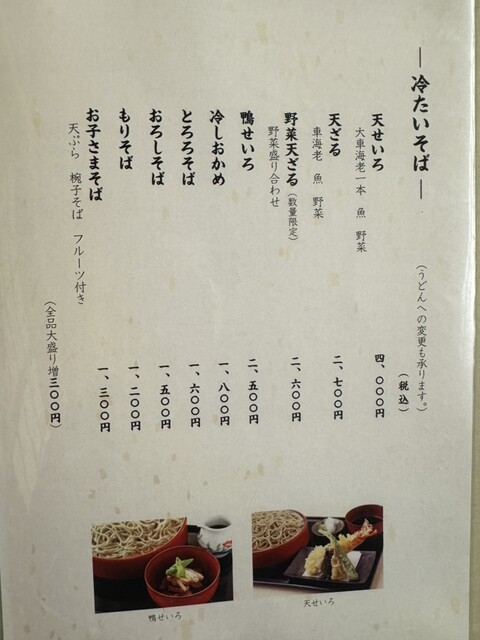 ― 冷たいそば ―
(うどんへの変更も承ります。)
(税込)
天せいろ 四、〇〇〇円
大車海老一本 魚 野菜
天ざる 二、七〇〇円
車海老 魚 野菜
野菜天ざる(数量限定) 二、六〇〇円
野菜盛り合わせ
鴨せいろ 二、五〇〇円
冷しおかめ 一、八〇〇円
とろろそば 一、六〇〇円
おろしそば 一、五〇〇円
もりそば 一、二〇〇円
お子さまそば 一、三〇〇円
天ぷら 椀子そば フルーツ付き
(全品大盛り増三〇〇円)
天せいろ
鴨せいろ